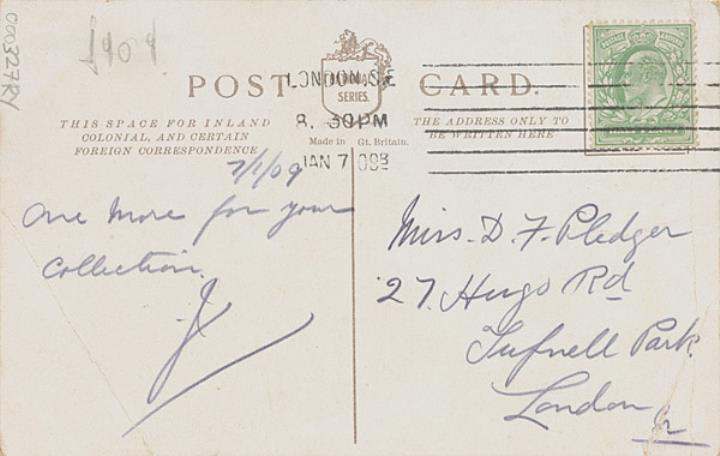 000327RY
1909
POST CARD.
LONDON. S.E
8. 30PM
JAN 7 09B
SERIES.
THIS SPACE FOR INLAND
COLONIAL, AND CERTAIN
FOREIGN CORRESPONDENCE
THE ADDRESS ONLY TO
BE WRITTEN HERE
Made in Gt. Britain.
7/1/09
One more for your
Collection.
Miss. D. F. Pledger
27. Hugo Rd
Tufnell Park.
London